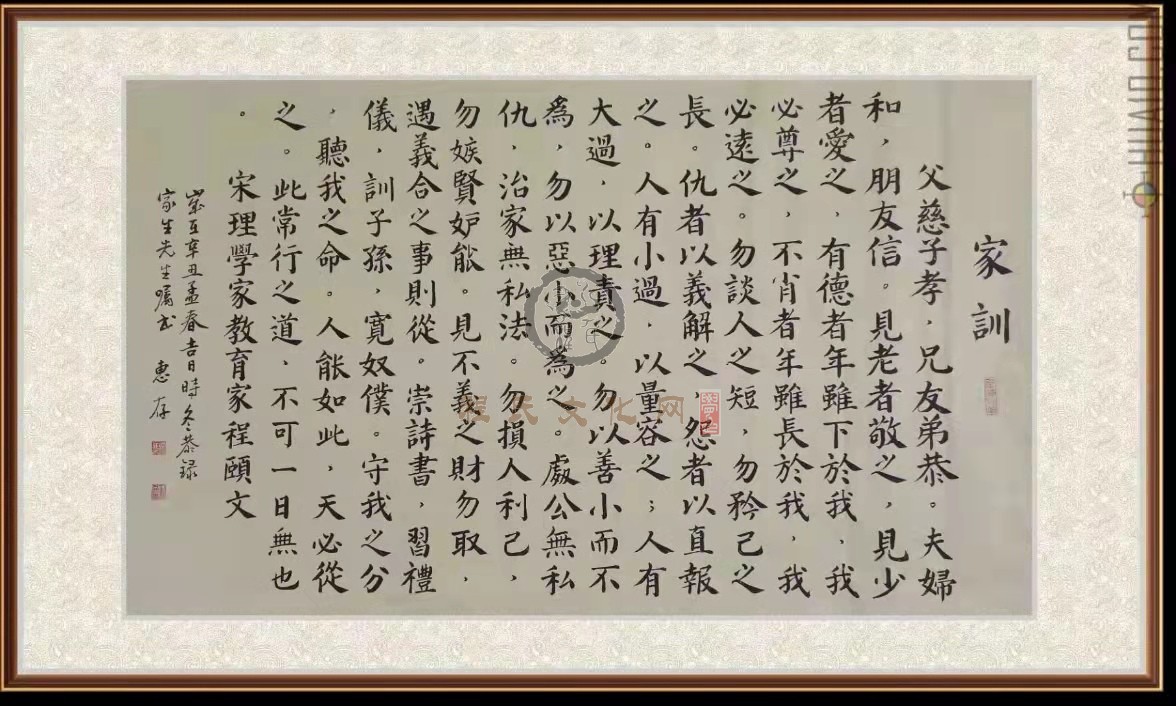 家訓
父慈子孝，兄友弟恭。夫婦
和，朋友信。見老者敬之，見少
者愛之，有德者年雖下於我，我
必尊之，不肖者年雖長於我，我
必遠之。勿談人之短，勿矜己之
長。仇者以義解之，怨者以直報
之。人有小過，以量容之；人有
大過，以理責之。勿以善小而不
為，勿以惡小而為之。處公無私
仇，治家無私法。勿損人利己，
勿嫉賢妒能。見不義之財勿取，
遇義合之事則從。崇詩書，習禮
儀，訓子孫，寬奴僕。守我之分
，聽我之命。人能如此，天必從
之。此常行之道，不可一日無也
。
宋理學家教育家程頤文
歲在辛丑孟春吉日時冬恭録
家生先生囑書 惠存
程氏文化网
HUAIO.COM